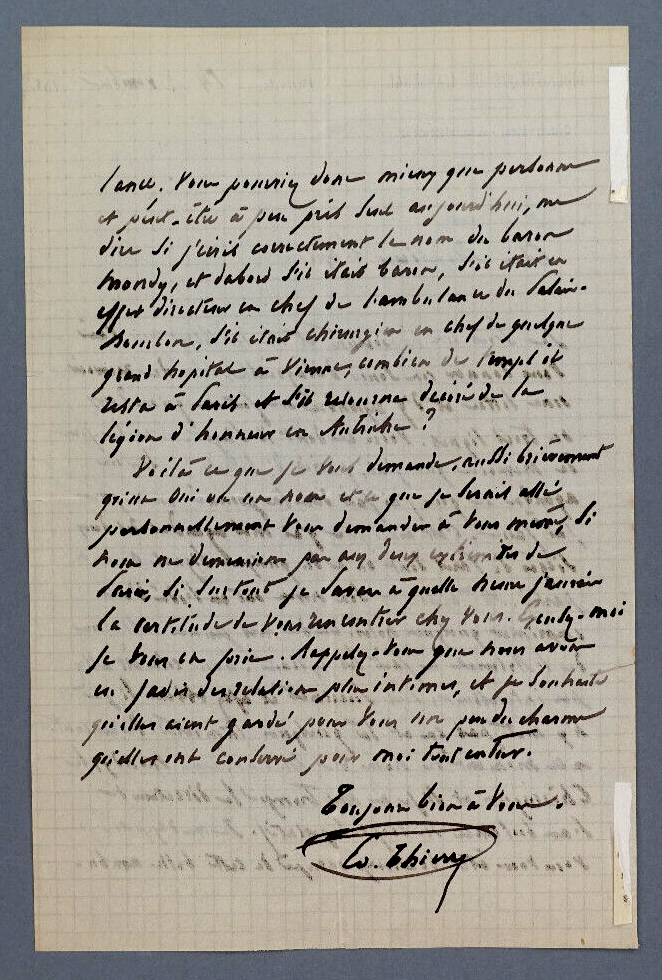 lance. Vous pouvriez donc mieux que personne
et peut-être à peu près seul aujourd'hui, me
dire si j'écris correctement le nom du baron
Mondy, et d'abord s'il était baron, s'il était en
effet directeur en chef de l'ambulance du Palais-
Bourbon, s'il était chirurgien en chef de quelque
grand hopital à Vienne, combien de temps il
resta à Paris et s'il retourna décoré de la
légion d'honneur en Autriche ?
Voilà ce que je vous demande, aussi brièvement
qu'un oui ou un non et ce que je serais allé
personnellement vous demander à vous même, si
nous ne demeurions pas aux deux extrémités de
Paris, si surtout je savais à quelle heure j'aurais
la certitude de vous rencontrer chez vous. Ecrivez-moi
je vous en prie. Rappelez-vous que nous avons
eu jadis des relations plus intimes, et je souhaite
qu'elles aient gardé pour vous un peu du charme
qu'elles ont conservé pour moi tout entier.
Toujours bien à vous.
Ed. Thierry